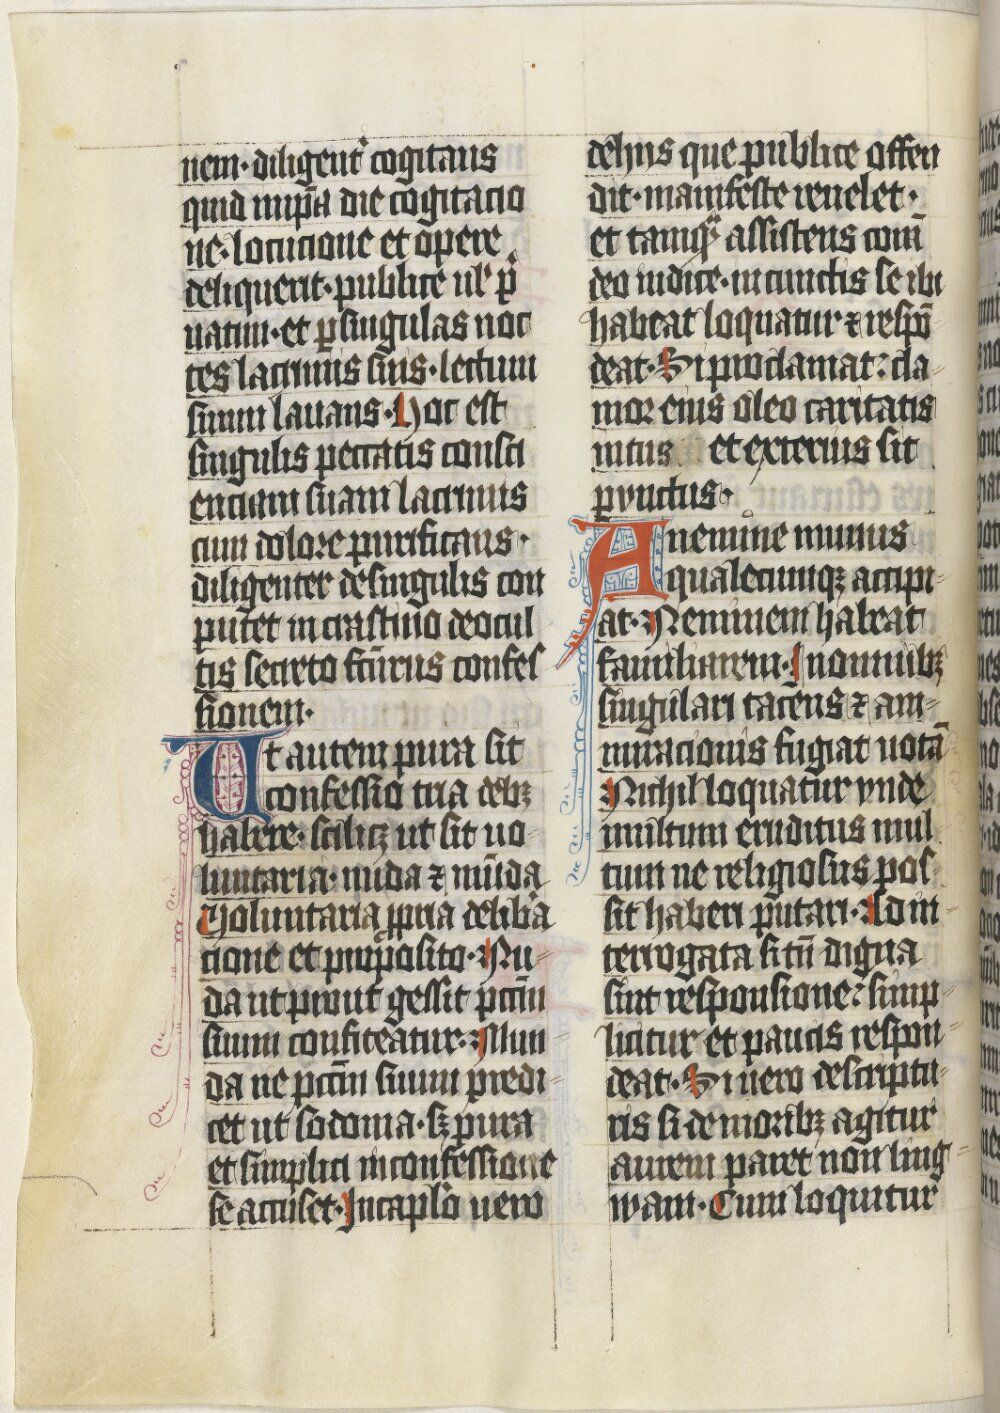 nem· diligent᷑ cogitans
quid in ip̄a die cogitacio
ne· locucione et opere
deliquerit· publice ul̓ p̄
uatim· et ꝑ singulas noc
tes lacrimis suis· lectum
suum lauans· Hoc est
singulis peccatis consci
enciam suam lacrimis
cum dolore purificans·
diligenter de singulis con
putet in crastino de ocul
tis secreto fc̄urus confes
sionem·
Ut autem pura sit
confessio tria debꝫ
habere· scilicꝫ ut sit uo
luntaria· nuda ⁊ mūda
Voluntaria ꝓpria delib̓a
cione et proposito· Nu
da ut prout gessit pctm̄
suum confiteatur· Mun
da ne pctm̄ suum predi
cet ut sodoma· sꝫ pura
et simplici in confessione
se accuset· In caplo᷑ uero
de hiis que publice offen
dit· manifeste reuelet·
et tamqͣ assistens corā
deo iudice· in cunctis se ibi
habeat loquatur ⁊ respō
deat· Si proclamat᷑ cla
mor eius oleo caritatis
intus et exterius sit
pvnctus·
A nemine munus
qualecumqꝫ accipi
at· Neminem habeat
familiarem· In omnibꝫ
singulari tacens ⁊ am
miracionis fugiat notā
Nichil loquatur vnde
multum eruditus mul
tum ne religiosus pos
sit haberi putari· Ad in
terrogata si tn̄ digna
sint responsione᷑ simp
liciter et paucis respon
deat· Si uero de scriptu
ris si de moribꝫ agitur
aurem paret non ling
wam· Cum loquitur